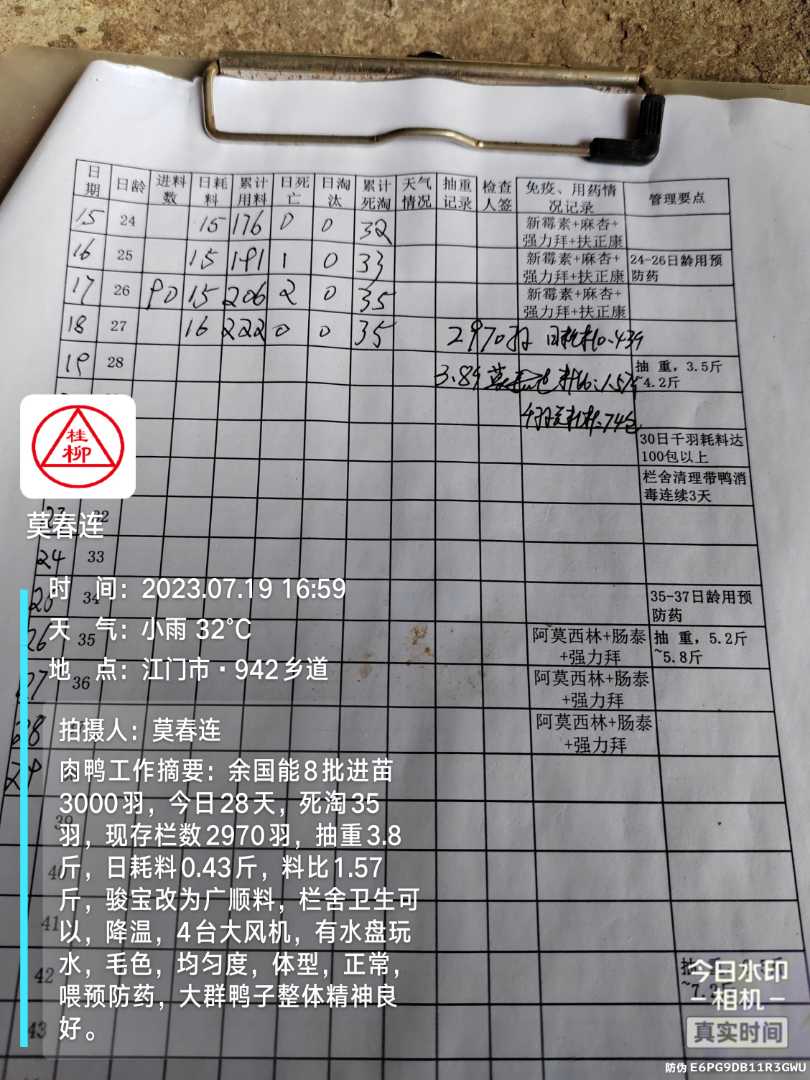 日期 日龄 进料数 日耗料 累计用料 日死亡 日淘汰 累计死淘 天气情况 抽重记录 检查人签 免疫、用药情况记录 管理要点
15 24 15 176 0 0 32 新霉素+麻杏+强力拜+扶正康
16 25 15 191 1 0 33 新霉素+麻杏+强力拜+扶正康 24-26日龄用预防药
17 26 90 15 206 2 0 35 新霉素+麻杏+强力拜+扶正康
18 27 16 222 0 0 35 2970羽 日耗料0.43斤
19 28 3.8斤 莫春连 料比:1.57斤 抽 重，3.5斤
4.2斤
千羽耗料:74包
30日千羽耗料达100包以上
栏舍清理带鸭消毒连续3天
桂柳
莫春连
23
24 33
34 35-37日龄用预防药
26 35 阿莫西林+肠泰+强力拜 抽 重，5.2斤~5.8斤
27 36 阿莫西林+肠泰+强力拜
28 阿莫西林+肠泰+强力拜
29
39
40
41
42
43
时 间：2023.07.19 16:59
天 气：小雨 32℃
地 点：江门市·942乡道
拍摄人：莫春连
肉鸭工作摘要：余国能8批进苗
3000羽，今日28天，死淘35
羽，现存栏数2970羽，抽重3.8
斤，日耗料0.43斤，料比1.57
斤，骏宝改为广顺料，栏舍卫生可
以，降温，4台大风机，有水盘玩
水，毛色，均匀度，体型，正常，
喂预防药，大群鸭子整体精神良
好。
今日水印
-相机-
真实时间
防伪 E6PG9DB11R3GWU